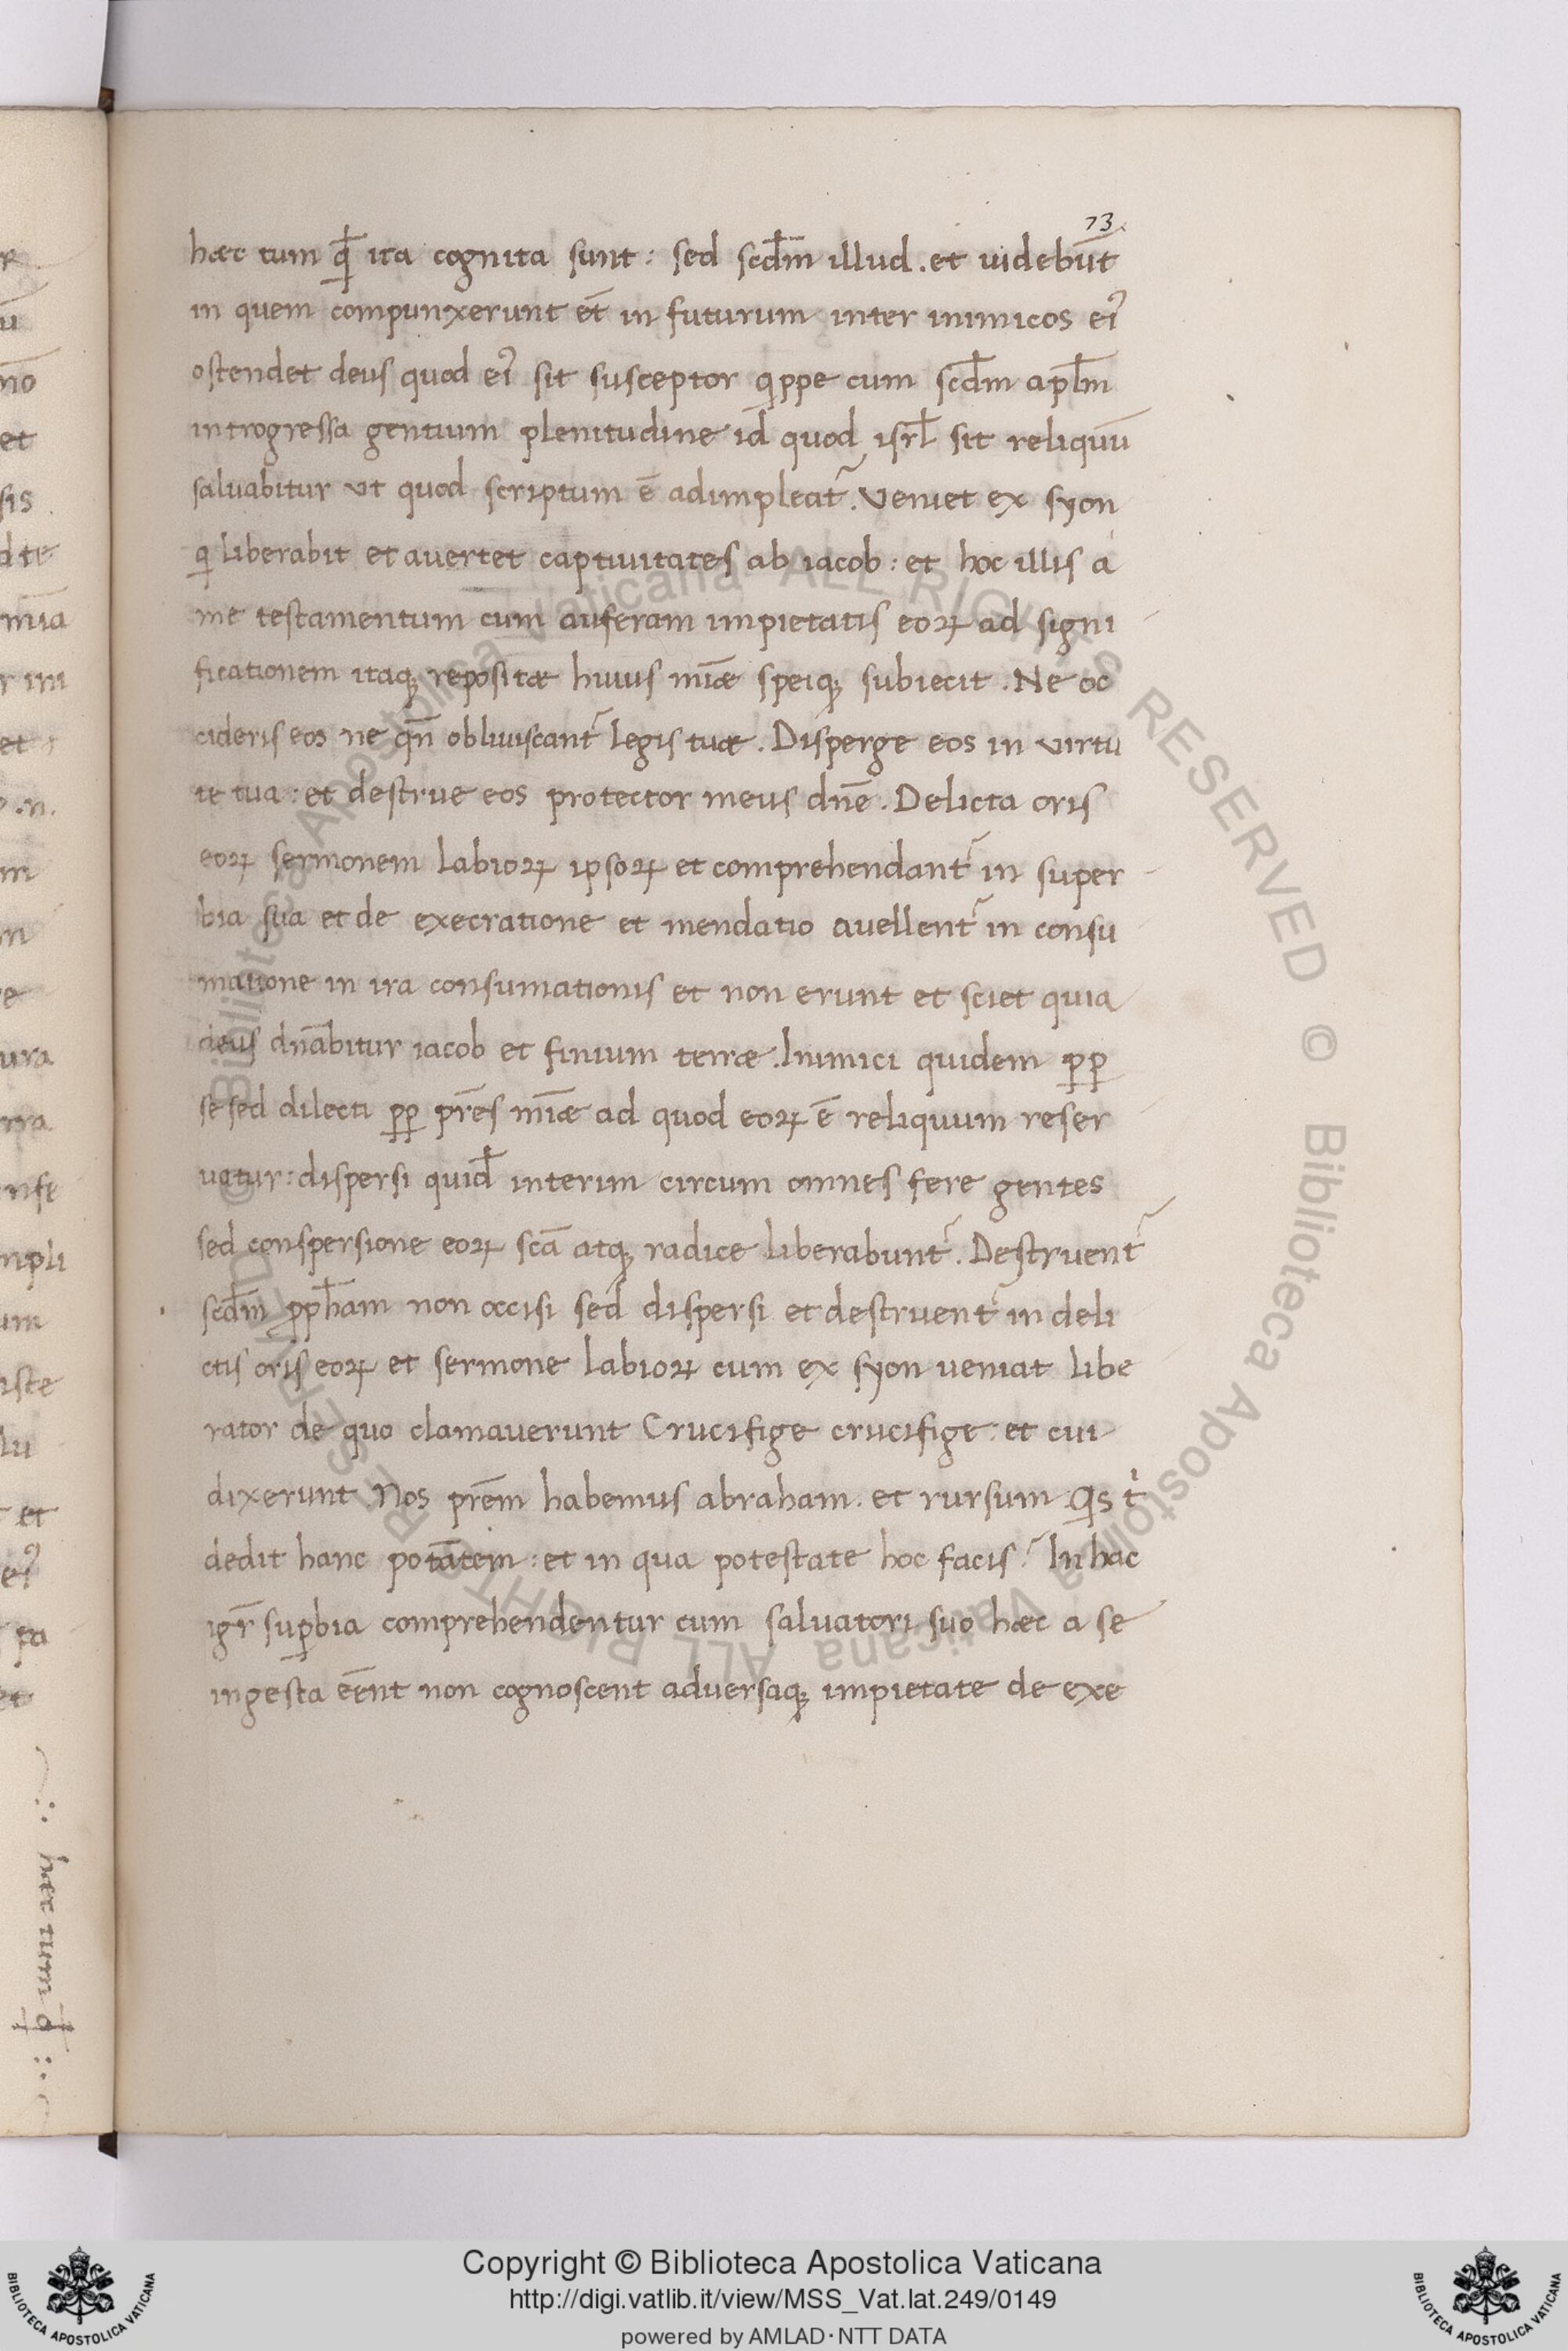 73
hæc tum qd̄ ita cognita sunt: sed scdm̄ illud. et uidebūt
in quem compunxerunt et̄ in futurum inter inimicos eiꝰ
ostendet deus quod eiꝰ sit susceptor qppe cum scdm̄ aplm̄
introgressa gentium plenitudine id quod isrl̄ sit reliquū
saluabitur vt quod scriptum ē adimpleat᷑. Veniet ex syon
q liberabit et avertet captiuitates ab iacob: et hoc illis a
me testamentum cum auferam impietatis eoꝝ ad signi
ficationem itaqꝫ repositæ huius mīæ speiqꝫ subiecit. Ne oc
cideris eos ne qn̄ obliuiscant᷑ legis tuæ. Disperge eos in virtu
te tua: et destrue eos protector meus dnē. Delicta oris
eoꝝ sermonem labioꝝ ipsoꝝ et comprehendant᷑ in super
bia sua et de execratione et mendatio avellent᷑ in consu
matione in ira consumationis et non erunt et sciet quia
deus dnābitur iacob et finium terræ. Inimici quidem ꝓꝑ
se sed dilecti ꝓꝑ prēs mīæ ad quod eoꝝ ē reliquum reser
uatur: dispersi quid̄ interim circum omnes fere gentes
sed conspersione eoꝝ scā atqꝫ radice liberabunt᷑. Destruent᷑
scdm̄ ꝓph̄am non occisi sed dispersi et destruent᷑ in deli
ctis oris eoꝝ et sermone labioꝝ cum ex syon veniat libe
rator de quo clamaverunt Crucifige crucifige: et cui
dixerunt Nos prēm habemus abraham. et rursum Qis t
dedit hanc potātem: et in qua potestate hoc facis? In hac
igr̄ suꝑbia comprehendentur cum saluatori suo hæc a se
ingesta eēnt non cognoscent adversaqꝫ impietate de exe
hæc tum
© Biblioteca Apostolica Vaticana ALL RIGHTS RESERVED © Biblioteca Apostolica Vaticana ALL RIGHTS RESERVED
Copyright © Biblioteca Apostolica Vaticana
http://digi.vatlib.it/view/MSS_Vat.lat.249/0149
powered by AMLAD·NTT DATA
BIBLIOTECA APOSTOLICA VATICANA
BIBLIOTECA APOSTOLICA VATICANA